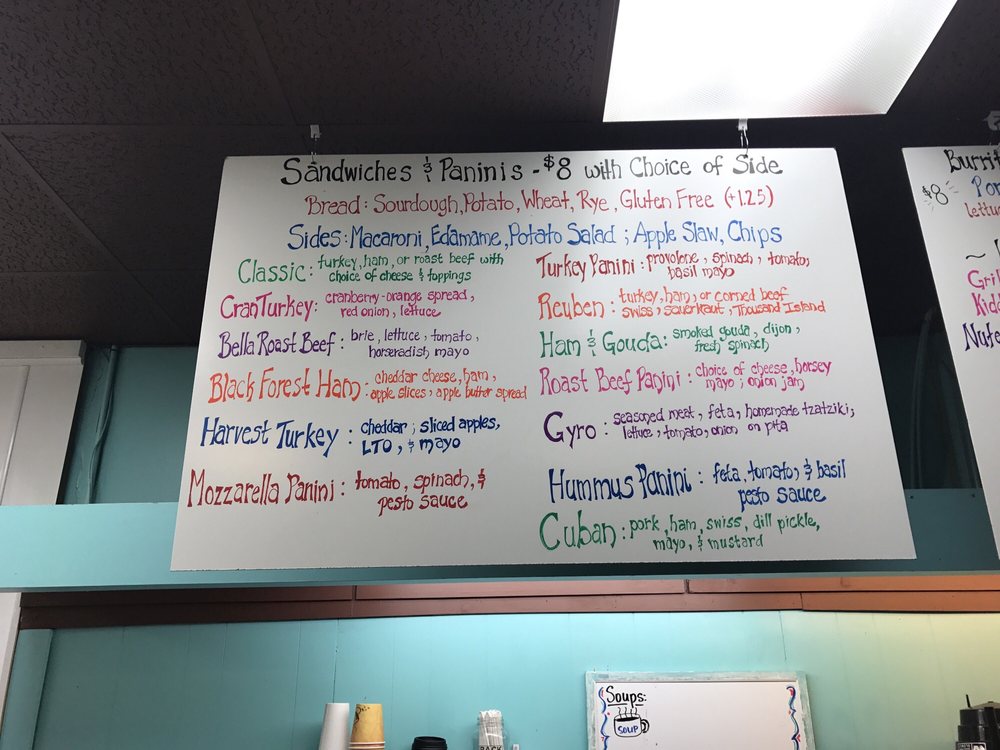 Sandwiches & Paninis - $8 with Choice of Side
Bread: Sourdough, Potato, Wheat, Rye, Gluten Free (+1.25)
Sides: Macaroni, Edamame, Potato Salad; Apple Slaw, Chips
Classic: turkey, ham, or roast beef with
choice of cheese & toppings
CranTurkey: cranberry-orange spread,
red onion, lettuce
Bella Roast Beef: brie, lettuce, tomato,
horseradish mayo
Black Forest Ham: cheddar cheese, ham,
apple slices, apple butter spread
Harvest Turkey: cheddar; sliced apples,
LTO, & mayo
Mozzarella Panini: tomato, spinach, &
pesto sauce
Turkey Panini: provolone, spinach, tomato,
basil mayo
Reuben: turkey, ham, or corned beef
swiss, sauerkraut, Thousand Island
Ham & Gouda: smoked gouda, dijon,
fresh spinach
Roast Beef Panini: choice of cheese, horsey
mayo; onion jam
Gyro: seasoned meat, feta, homemade tzatziki,
lettuce, tomato, onion on pita
Hummus Panini: feta, tomato, & basil
pesto sauce
Cuban: pork, ham, swiss, dill pickle,
mayo, & mustard
$8
Soups:
SOUP